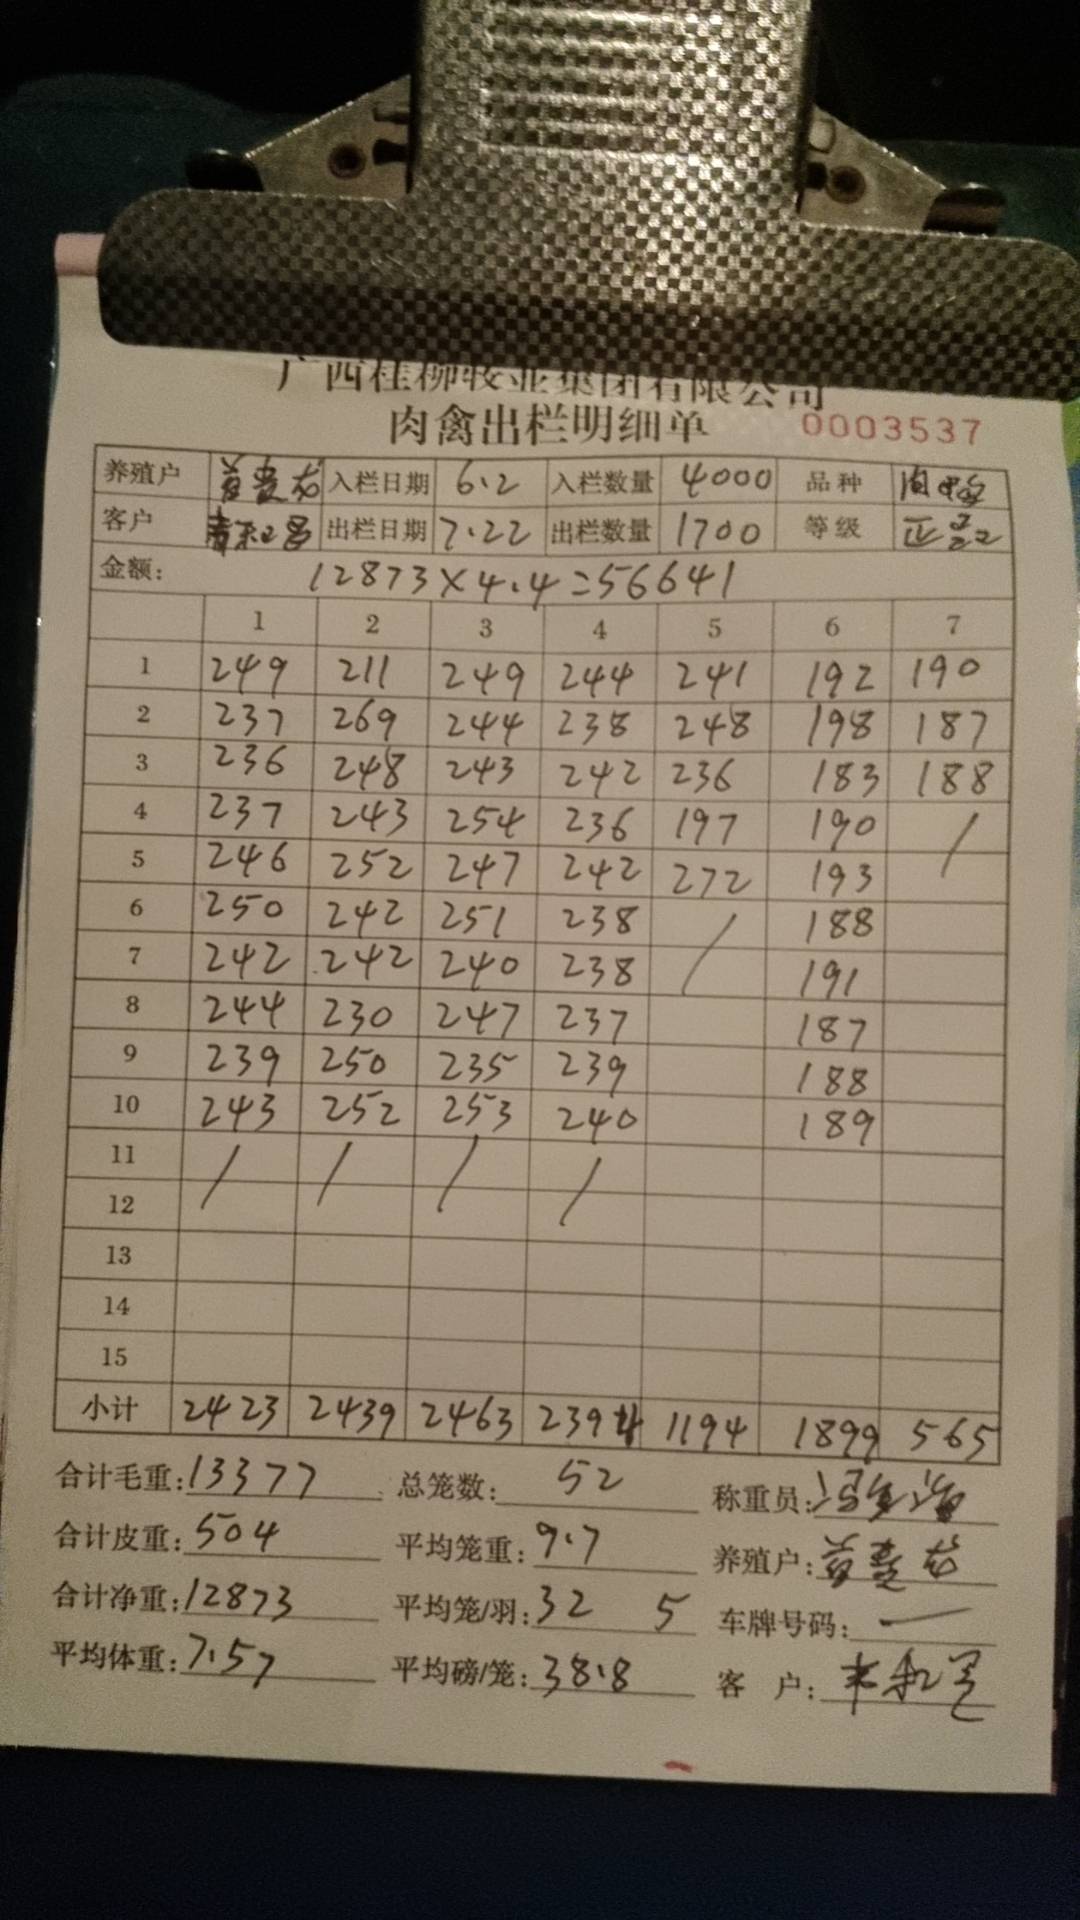 广西桂柳牧业集团有限公司
肉禽出栏明细单 0003537
养殖户 入栏日期 6.2 入栏数量 4000 品种
客户 出栏日期 7.22 出栏数量 1700 等级 正品
金额: 12873×4.4=56641
1 2 3 4 5 6 7
1 249 211 249 244 241 192 190
2 237 269 244 238 248 198 187
3 236 248 243 242 236 183 188
4 237 243 254 236 197 190 /
5 246 252 247 242 272 193
6 250 242 251 238 / 188
7 242 242 240 238 191
8 244 230 247 237 187
9 239 250 235 239 188
10 243 252 253 240 189
11 / / / /
12
13
14
15
小计 2423 2439 2463 2394 1194 1899 565
合计毛重: 13377 总笼数: 52 称重员:
合计皮重: 504 平均笼重: 9.7 养殖户:
合计净重: 12873 平均笼/羽: 32 5 车牌号码: —
平均体重: 7.57 平均磅/笼: 38.8 客 户: